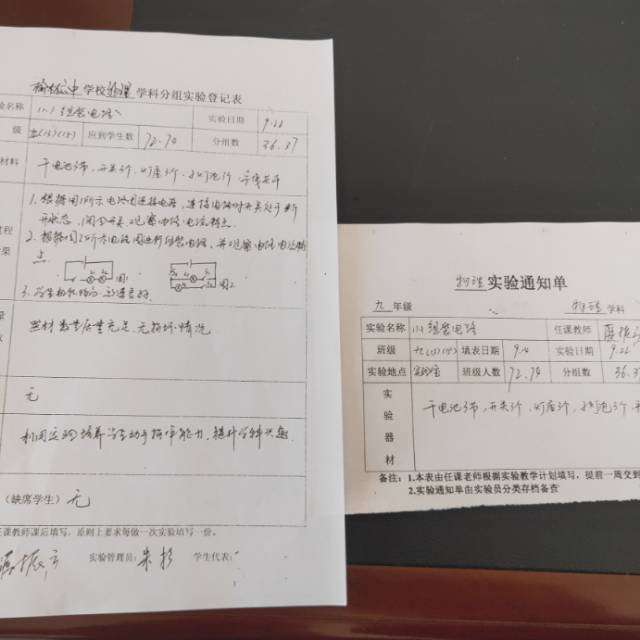 学校物理学科分组实验登记表
验名称 11.1组装电路 实验日期 9.22
级 九(1)(2) 应到学生数 72.74 分组数 36.37
材料 干电池2节、开关1个、灯座2个、小灯泡2个、导线若干
1.根据图1所示电路图连接电路,连接电路时开关处于断
开状态,闭合开关,观察电路电流特点。
程 2.根据图2所示电路图进行组装电路,并观察电路电流特
果 点
图1 图2
3.学生动手,老师
量
数 器材数量质量充足,无损坏情况
无
利用实验培养学生动手操作能力,提升学科兴趣
(缺席学生) 无
任课教师课后填写,原则上要求每做一次实验填写一份。
振 实验管理员:朱 学生代表:
物理实验通知单
九年级 物理学科
实验名称 11.1组装电路 任课教师
班级 九(1)(2) 填表日期 9.14 实验日期 9.22
实验地点 实验室 班级人数 72.74 分组数 36.37
实验器材 干电池2节,开关1个,灯座2个,小灯泡2个,
备注:1.本表由任课老师根据实验教学计划填写,提前一周交到
2.实验通知单由实验员分类存档备查